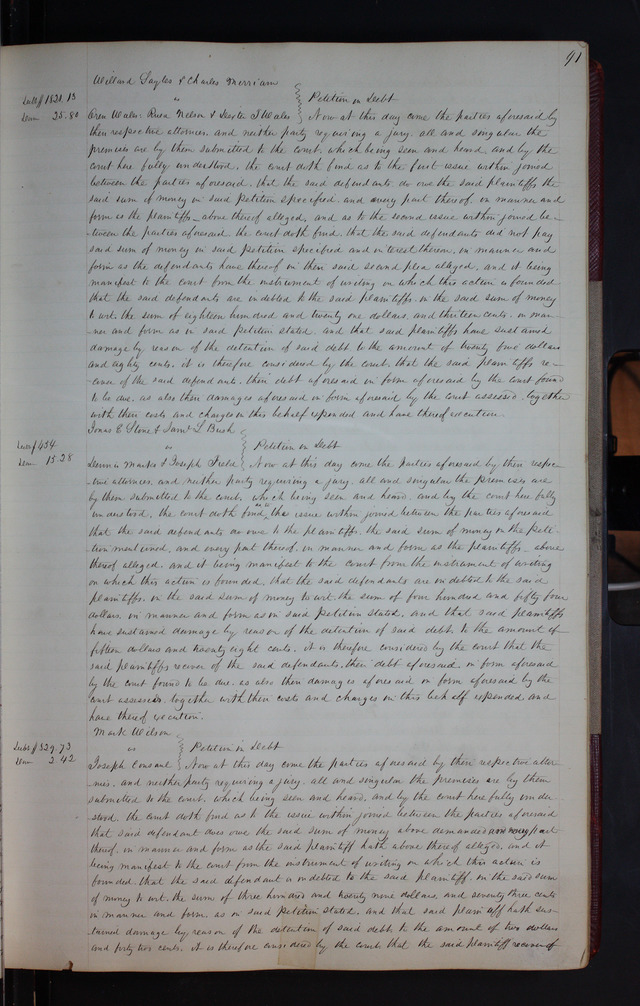 91
Willard Sayles & Charles Merriam
Debt $1821.13 vs Petition in Debt
Dam 25.80 Oren Wales. Rusa Nelson & Seayler T Wales Now at this day come the parties aforesaid by
their respective attornies. and neither party requiring a jury. all and singular the
premises are by them submitted to the court. which being seen and heard. and by the
court here fully understood. the court doth find as to the first issue within joined
between the parties aforesaid. that the said defendants do owe the said plaintiffs the
said sum of money in said petition specified. and every part thereof. in manner and
form as the plaintiffs above thereof alleged. and as to the second issue within joined be-
-tween the parties aforesaid. the court doth find. that the said defendants did not pay
said sum of money in said petition specified and interest thereon. in manner and
form as the defendants have thereof in their said second plea alleged. and it being
manifest to the court from the instrument of writing on which this action is founded
that the said defendants are indebted to the said plaintiffs. in the said sum of money
to wit. the sum of eighteen hundred and twenty one dollars. and thirteen cents. in man-
ner and form as in said petition stated. and that said plaintiffs have sustained
damage by reason of the detention of said debt. to the amount of twenty five dollars
and eighty cents. it is therefore considered by the court. that the said plaintiffs re-
cover of the said defendants. their debt aforesaid in form aforesaid by the court found
to be due. as also their damages aforesaid in form aforesaid by the court assessed. together
with their costs and charges in this behalf expended and have thereof execution.
Jonas E Stone & Saml L Bush
Debt $454 vs Petition in Debt
Dam 15.28 Dennis Marks & Joseph Field Now at this day come the Parties aforesaid by their respec-
-tive attornies. and neither party requiring a jury. all and singular the premises are
by them submitted to the court. which being seen and heard. and by the court here fully
understood. the court doth find as to the issue within joined between the parties aforesaid
that the said defendants do owe to the plaintiffs. the said sum of money in the peti-
-tion mentioned. and every part thereof. in manner and form as the plaintiffs above
thereof alleged. and it being manifest to the court from the instrument of writing
on which this action is founded. that the said defendants are indebted to the said
plaintiffs. in the said sum of money to wit. the sum of four hundred. and fifty four
dollars. in manner and form as in said petition stated. and that said plaintiffs
have sustained damage by reason of the detention of said debt. to the amount of
fifteen dollars and twenty eight cents. it is therefore considered by the court that the
said plaintiffs recover of the said defendants. their debt aforesaid. in form aforesaid
by the court found to be due. as also their damages aforesaid in form aforesaid by the
court assessed. together with their costs and charges in this behalf expended. and
have thereof execution.
Mark Wilson
Debt $329.73 vs Petition in Debt
Dam 2.42 Joseph Consant Now at this day come the parties aforesaid by their respective attor-
nies. and neither party requiring a jury. all and singular the premises are by them
submitted to the court. which being seen and heard. and by the court here fully under
stood. the court doth find as to the issue within joined between the parties aforesaid
that said defendant does owe the said sum of money above demanded and every part
thereof. in manner and form as the said plaintiff hath above thereof alleged. and it
being manifest to the court from the instrument of writing on which this action is
founded. that the said defendant is indebted to the said plaintiff. in the said sum
of money to wit. the sum of three hundred and twenty nine dollars. and seventy three cents
in manner and form. as in said petition stated. and that said plaintiff hath sus-
tained damage by reason of the detention of said debt to the amount of two dollars
and forty two cents. it is therefore considered by the court. that the said plaintiff recover of